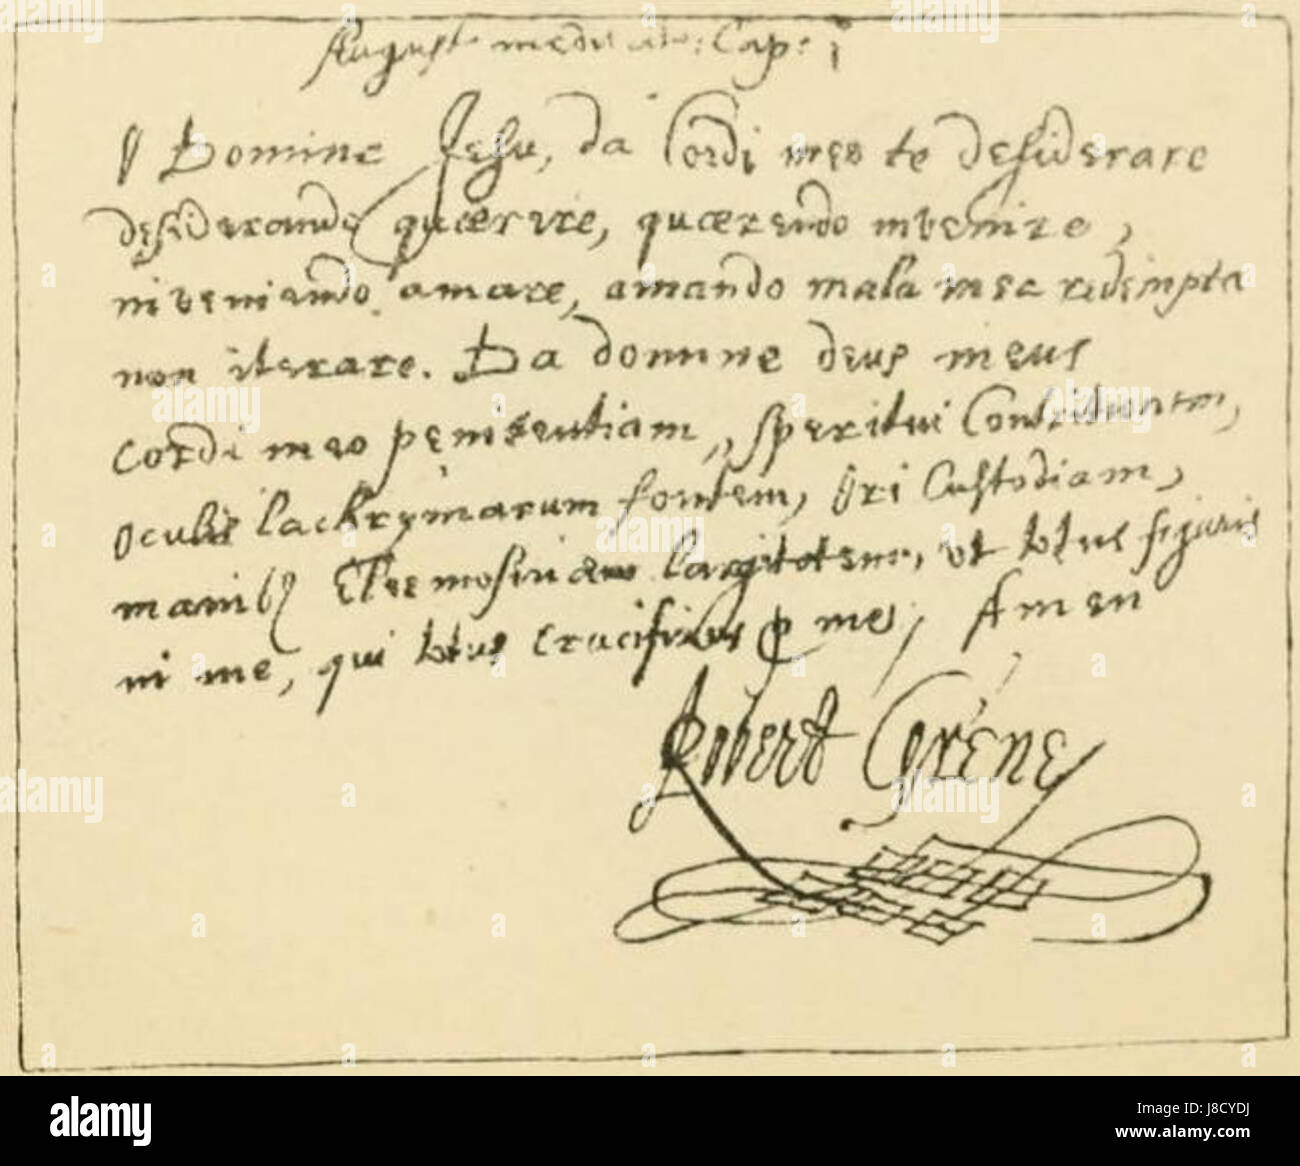 August: meditatio: Cap: i
Domine Jesu, da Cordi meo te desiderare
desiderando quærere, quærendo invenire,
inveniendo amare, amando mala mea redempta
non iterare. Da domine deus meus
cordi meo penitentiam, speritui Contrituam,
oculis lachrymarum fontem, Ori Custodiam,
manibȝ Eleemosinam largitatem, ut totus figuris
in me, qui totus crucifixus ꝑ me, Amen
Robert Grene
alamy
Image ID: J8CYDJ
www.alamy.com